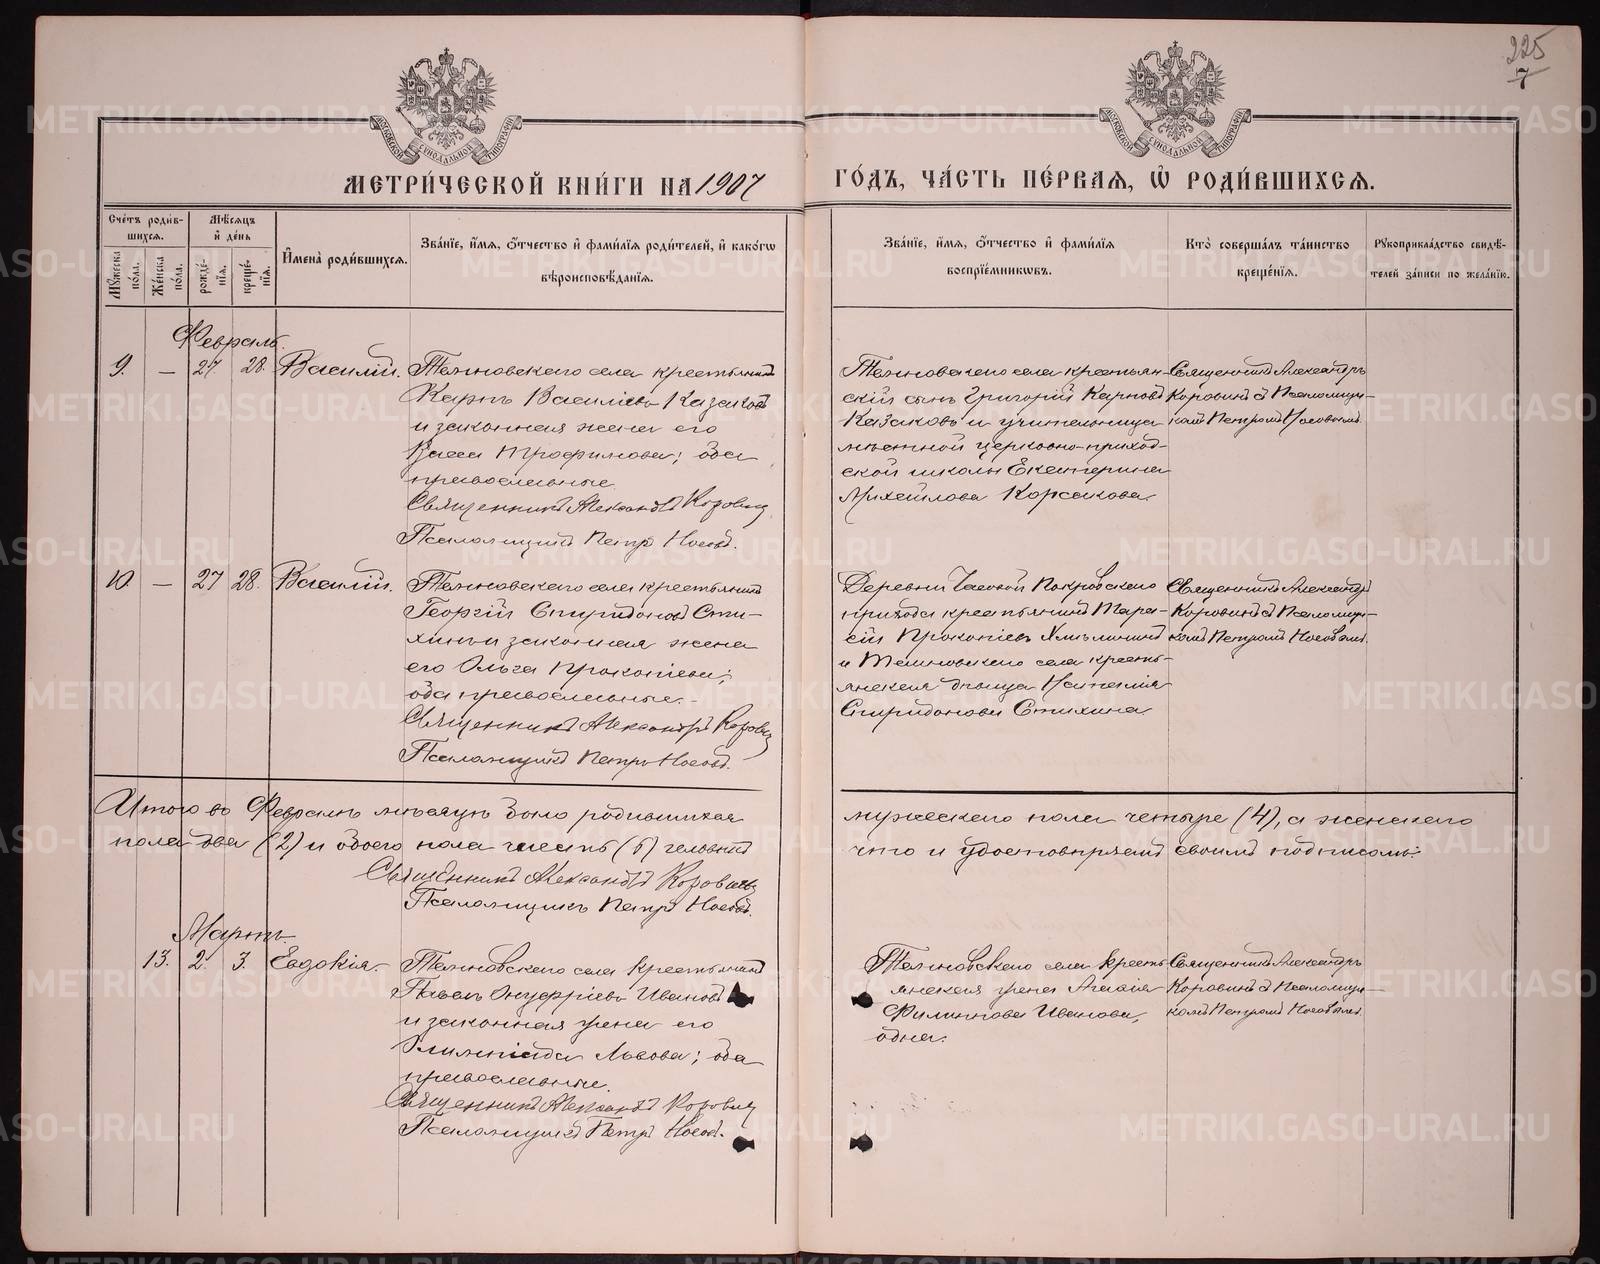 225
7
МЕТРИ́ЧЕСКОЙ КНИ́ГИ НА 1907
ГО́ДЪ, ЧА́СТЬ ПЕ́РВАЯ, Ѽ РОДИ́ВШИХСЯ.
Сче́тъ роди́в-
шихся.
Мѣ́сяцъ
и҆ де́нь
Мꙋ́жеска по́ла.
Же́нска по́ла.
рожде́-
нїя.
креще́-
нїя.
И҆мена̀ роди́вшихся.
Зва́нїе, и҆́мя, ѻ҆́тчество и҆ фами́лїя роди́телей, и҆ како́гѡ
вѣроисповѣ́данїя.
Зва́нїе, и҆́мя, ѻ҆́тчество и҆ фами́лїя
воспрїе́мникѡвъ.
Кто̀ соверша́лъ та́инство
креще́нїя.
Рꙋкоприкла́дство свидѣ́-
телей за́писи по жела́нїю.
Февраль.
9. — 27. 28. Василій.
село крестьянинъ
Карпъ Васильевъ Казаковъ
и законная жена его
Васса Трофимова; оба
православные.
Священникъ Александръ Коровинъ
Псаломщикъ Петръ Носовъ.
села крестьян-
скій сынъ Григорій Карповъ
Казаковъ и учительница
мѣстной церковно-приход-
ской школы Екатерина
Михайлова Корсакова.
Священникъ Александръ
Коровинъ съ Псаломщи-
комъ Петромъ Носовымъ.
10. — 27 28. Василій.
села крестьянинъ
Георгій Спиридоновъ Сти-
хинъ и законная жена
его Ольга Прокопіева;
оба православные.
Священникъ Александръ Коровинъ
Псаломщикъ Петръ Носовъ.
Деревни Часовой Покровскаго
прихода крестьянинъ Тара-
сій Прокопіевъ
и села кресть-
янская дѣвица Наталія
Спиридонова Стихина.
Священникъ Александръ
Коровинъ съ Псаломщи-
комъ Петромъ Носовымъ.
Итого въ Февралѣ мѣсяцѣ было родившихся
мужескаго пола четыре (4), а женскаго
пола два (2) и обоего пола шесть (6) человѣкъ
что и удостовѣряемъ своимъ подписомъ:
Священникъ Александръ Коровинъ
Псаломщикъ Петръ Носовъ.
Мартъ.
13. 2. 3. Евдокія.
села крестьянинъ
Павелъ Онуфріевъ Ивановъ
и законная жена его
Олимпіада Львова; оба
православные.
Священникъ Александръ Коровинъ
Псаломщикъ Петръ Носовъ.
села кресть-
янская жена
Филиппова Иванова,
одна.
Священникъ Александръ
Коровинъ съ Псаломщи-
комъ Петромъ Носовымъ.
METRIKI.GASO-URAL.RU